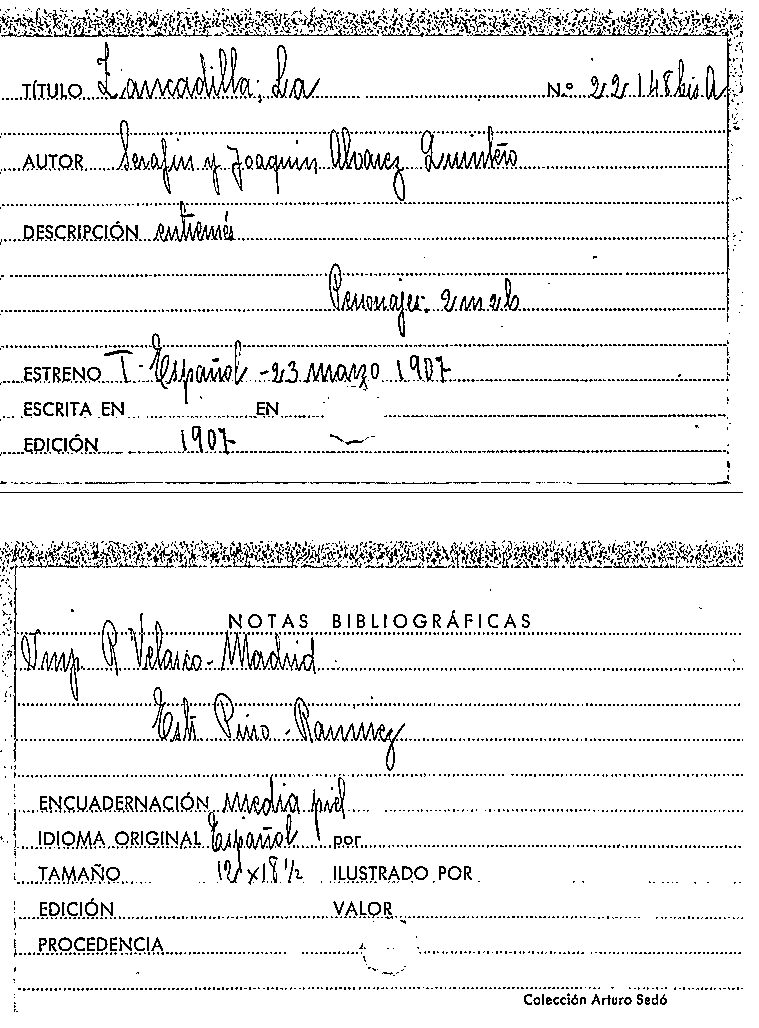 TÍTULO Zancadilla; La Nº 22148 bis A
AUTOR Serafin y Joaquin Alvarez Quintero
DESCRIPCIÓN entremés
Personajes. 2 m 2 h
ESTRENO T. Español - 23 marzo 1907
ESCRITA EN EN
EDICIÓN 1907
NOTAS BIBLIOGRÁFICAS
Imp. R Velasco - Madrid
Pino - Ramirez
ENCUADERNACIÓN media piel
IDIOMA ORIGINAL Español por
TAMAÑO 12 x 18 1/2 ILUSTRADO POR
EDICIÓN VALOR
PROCEDENCIA
Colección Arturo Sedó